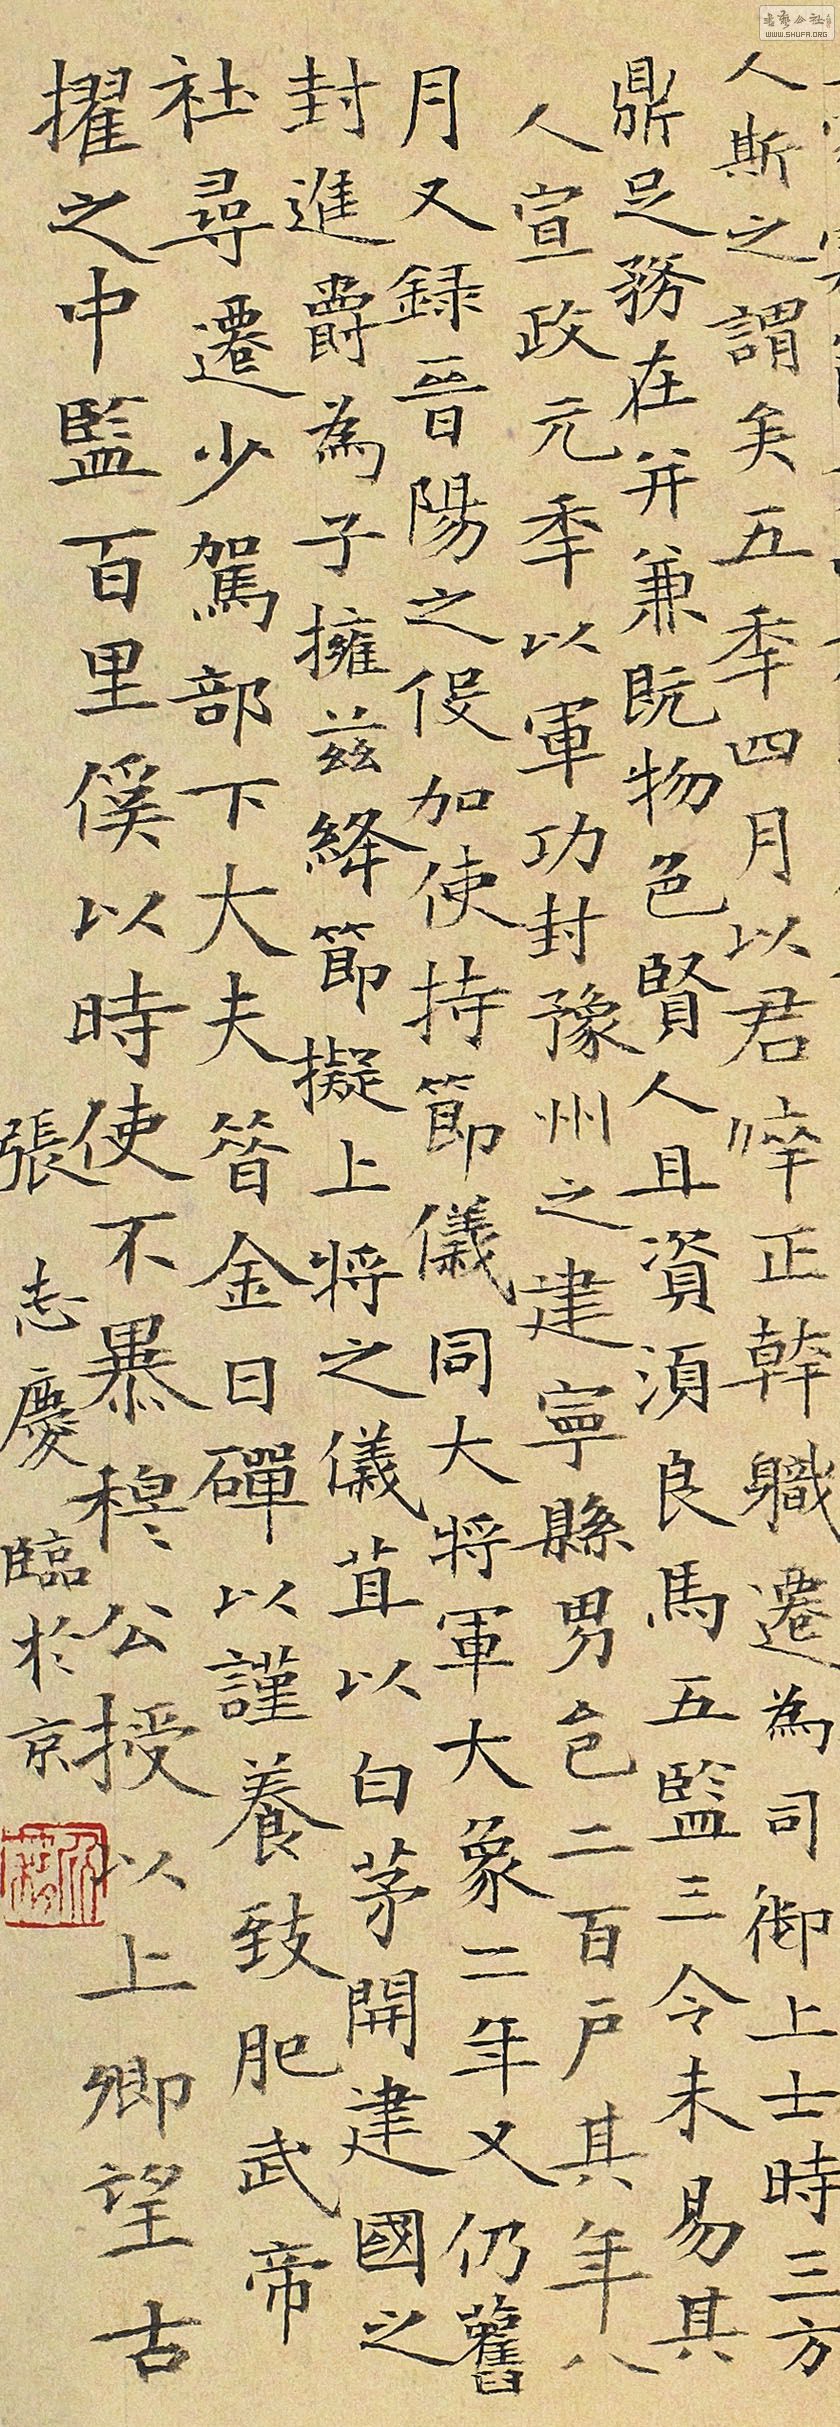 人斯之謂矣五秊四月以君啐正幹職遷為司御上士時三方
鼎足務在并兼既物色賢人且資須良馬五監三令未易其
人宣政元秊以軍功封豫州之建寧縣男邑二百戶其年八
月又録晉陽之役加使持節儀同大將軍大象二年又仍舊
封進爵為子擁茲絳節擬上將之儀苴以白茅開建國之
社尋遷少駕部下大夫昝金日磾以謹養致肥武帝
擢之中監百里傒以時使不暴穆公授以上卿望古
張志慶臨於京
書藝公社
WWW.SHUFA.ORG